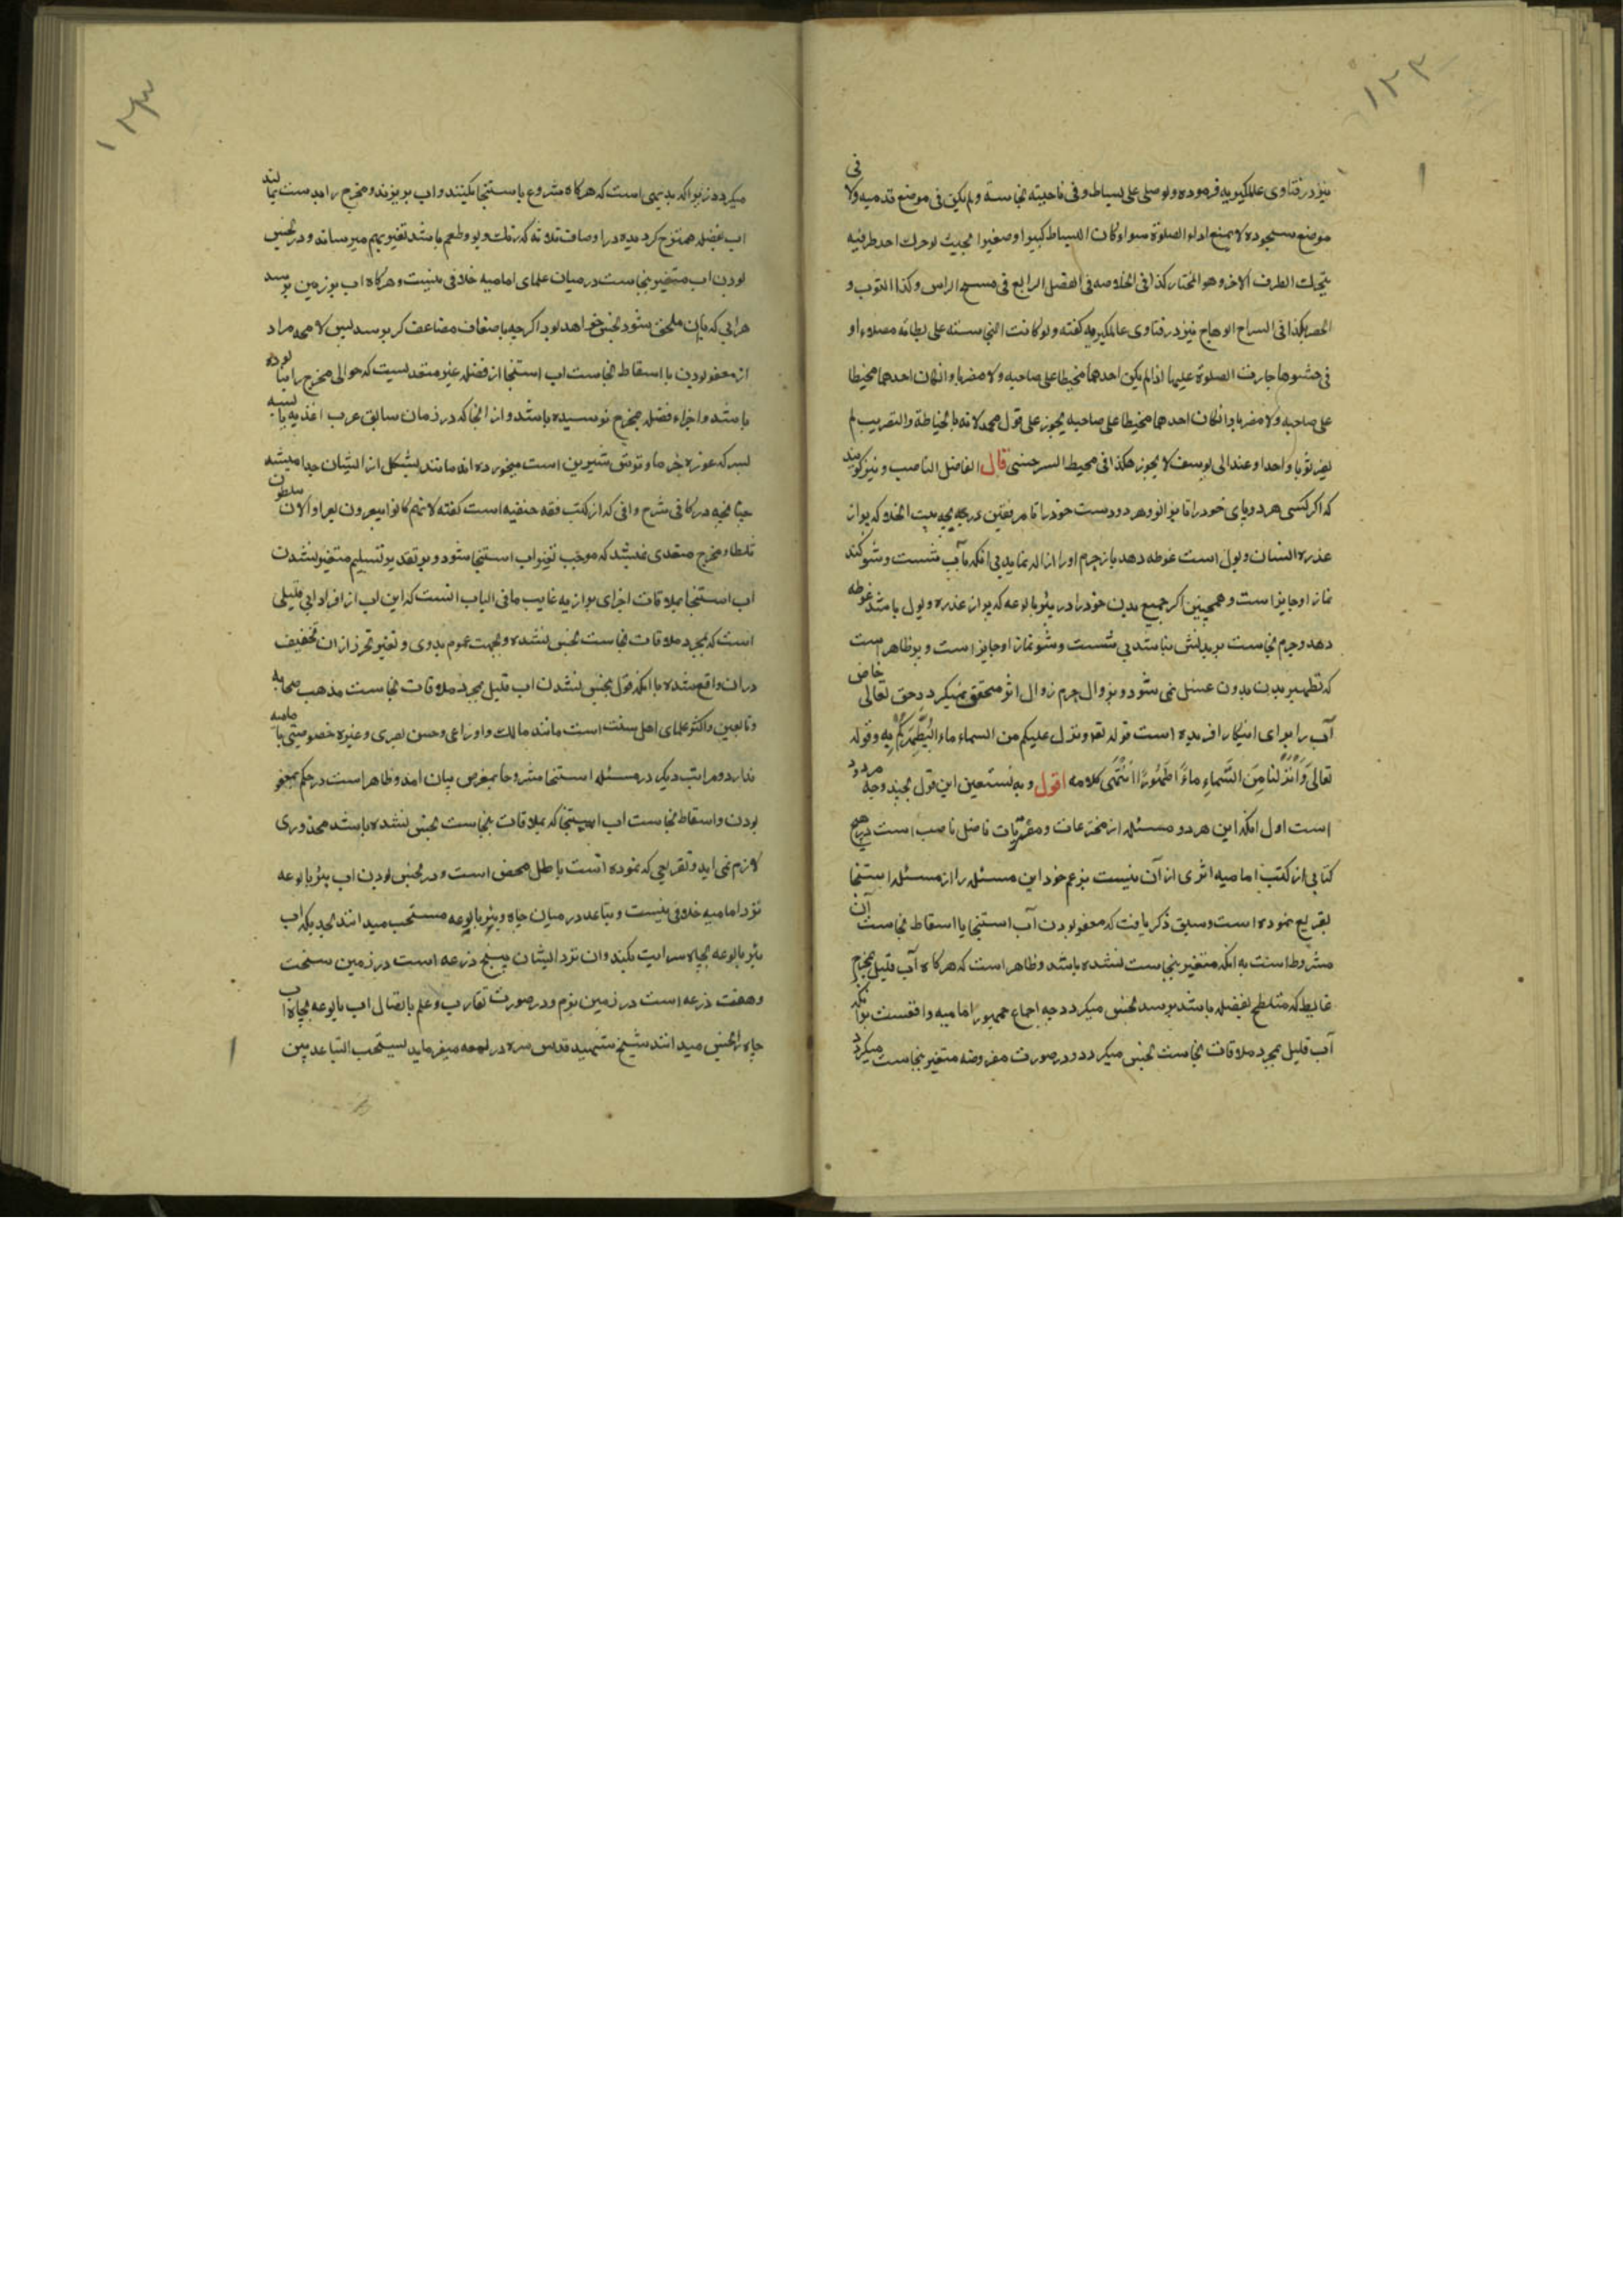 ۱۲۲
نیز در فتاوی عالمگیریه فرموده ولو صلی علی بساط وفی ناحیته نجاسة ولم یکن فی موضع قدمیه ولا فی
موضع سجوده لا یمنع اداء الصلوة سواء کان البساط کبیرا او صغیرا بحیث لو حرک احد طرفیه
یتحرک الطرف الاخر وهو المختار کذا فی الخلاصه فی الفصل الرابع فی مسح الراس وکذا الثوب و
الحصیر هکذا فی السراج الوهاج نیز در فتاوی عالمگیریه گفته ولو کانت النجاسة علی بطانه مصلاه او
فی حشوها جازت الصلوة علیها اذا لم یکن احدهما مخیطا علی صاحبه ولا مضربا وان کان احدهما مخیطا
علی صاحبه ولا مضربا وان کان احدهما مخیطا علی صاحبه یجوز علی قول محمد لانه بالخیاطة والتضریب لم
یصر ثوبا واحدا وعند ابی یوسف لا یجوز هکذا فی محیط السرخسی قال الفاضل الناصب ونیز گویند
که اگر کسی هر دو پای خود را تا بزانو وهر دو دست خود را تا مرفقین در بچه بیت الخلا که پر از
عذره انسان وبول است غوطه دهد باز جرم او را ازاله نماید بی آنکه بآب شست وشو کند
نماز او جایز است وهمچنین اگر جمیع بدن خود را در بئر بالوعه که پر از عذره وبول باشد غوطه
دهد وجرم نجاست بر بدنش نباشد بی شست وشو نماز او جایز است وپر ظاهر است
که تطهیر بدن بدون غسل نمی شود وبزوال جرم زوال اثر متحقق نمیگردد حق تعالی خاص
آب را برای اینکار افریده است قوله تعه وینزل علیکم من السماء ماء لیُطَهِّرَکُم بِهِ وقوله
تعالی وَاَنزَلنا مِنَ السَّماءِ ماءً طَهُورًا انتَهی کلامه اقول وبه نستعین این قول بچند وجه مردود
است اول آنکه این هر دو مسئله از مخترعات ومفتریات فاضل ناصب است در هیچ
کتابی از کتب امامیه اثری از آن نیست بزعم خود این مسئله را از مسئله استنجا
تفریع نموده است وسبق ذکر یافت که معفو بودن آب استنجا یا اسقاط نجاست آن
مشروط است به آنکه متغیر بنجاست نشده باشد وظاهر است که هرگاه آب قلیل بمخرج
غایط که متلطخ بفضله باشد برسد نجس میگردد چه اجماع جمهور امامیه واقعست بر آنکه
آب قلیل بمجرد ملاقات نجاست نجس میگردد ودر صورت مفروضه متغیر بنجاست میگردد
۱۲۳
میگردد زیرا که بدیهی است که هرگاه شروع باستنجا بکنند واب بریزند ومخرج را بدست بمالند
اب بفضله ممتزج گردیده در اوصاف ثلاثه که رنگ وبو وطعم باشد تغیر بهم میرسانه ودر نجس
بودن اب متغیر بنجاست در میان علمای امامیه خلافی نیست وهرگاه اب بر زمین برسد
هر ابی که بآن ملحق شود نجس خواهد بود اگرچه باضعاف مضاعف کر برسد لیس لا محه مراد
از معفو بودن یا اسقاط نجاست اب استنجا از فضله غیر متعدیست که حوالی مخرج را نیالوده
باشد واجزاء فضله بمخرج نرسیده باشد واز انجا که در زمان سابق عرب اغذیه یابسه
بسر که غوره خرما وتوتش شیرین است میخورده اند مانند پشکل از ایشان جدا میشد
چنانچه در کافی شرح وافی که از کتب فقه حنفیه است گفته لانهم کانوا یبعرون بعرا والان یثلطون
ثلطا ومخرج متعدی نمیشد که موجب تغیر اب استنجا شود وبر تقدیر تسلیم متغیر نشدن
اب استنجا بملاقات اجزای براز یه غایب ما فی الباب انست که این اب از افراد ابی قلیلی
است که بمجرد ملاقات نجاست نجس نشده وبجهت عموم بلوی وتعسر تحرز از ان تخفیف
در ان واقع شده با آنکه قول بنجس نشدن اب قلیل بمجرد ملاقات نجاست مذهب صحابه
وتابعین واکثر علمای اهل سنت است مانند مالک واوزاعی وحسن بصری وغیره خصوصیتی بامامیه
ندارد ومراتب دیگر در مسئله استنجا مشروحا بمعرض بیان امد وظاهر است در حکم بمعفو
بودن واسقاط نجاست اب استنجا که بملاقات نجاست نجس نشده باشد محذوری
لازم نمی اید وتفریعی که نموده انست باطل محض است ودر نجس بودن اب بئر بالوعه
نزد امامیه خلافی نیست وتباعد در میان چاه وبئر بالوعه مستحب میدانند بحدیکه اب
بئر بالوعه بچاه سرایت نکند وان نزد ایشان پنج ذرعه است در زمین سخت
وهفت ذرعه است در زمین نرم ودر صورت تقارب وعلم باتصال اب بالوعه بچاه اب
چاه را نجس میدانند شیخ شهید قدس سره در لمعه میفرماید یستحب التباعد بین